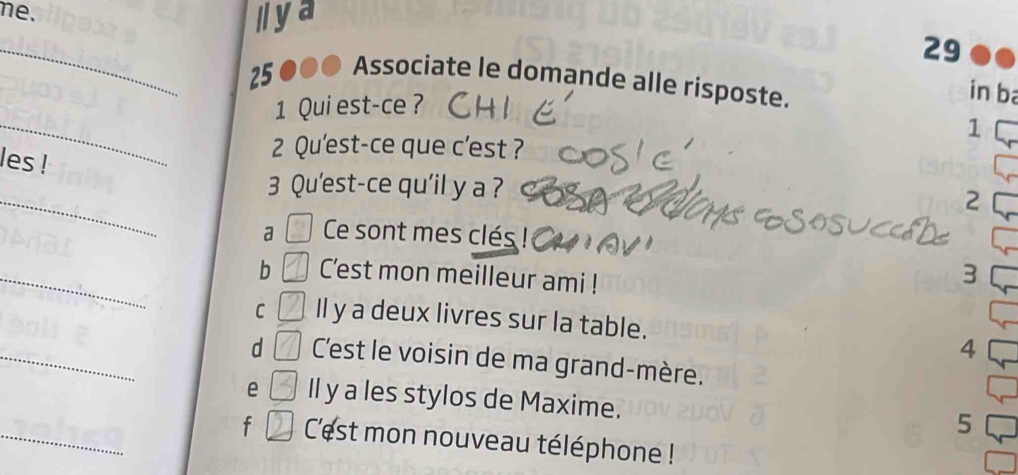 ne.
Il y a
les !
25 Associate le domande alle risposte.
1 Qui est-ce ? CHI É
2 Qu'est-ce que c'est ? COS'É
3 Qu'est-ce qu'il y a ? COSA SUCCEDE
a 2 Ce sont mes clés ! CHIAVI
b 1 C'est mon meilleur ami !
c Il y a deux livres sur la table.
d 1 C'est le voisin de ma grand-mère.
e 3 Il y a les stylos de Maxime.
f 2 C'est mon nouveau téléphone !
29
in ba
1
2
3
4
5